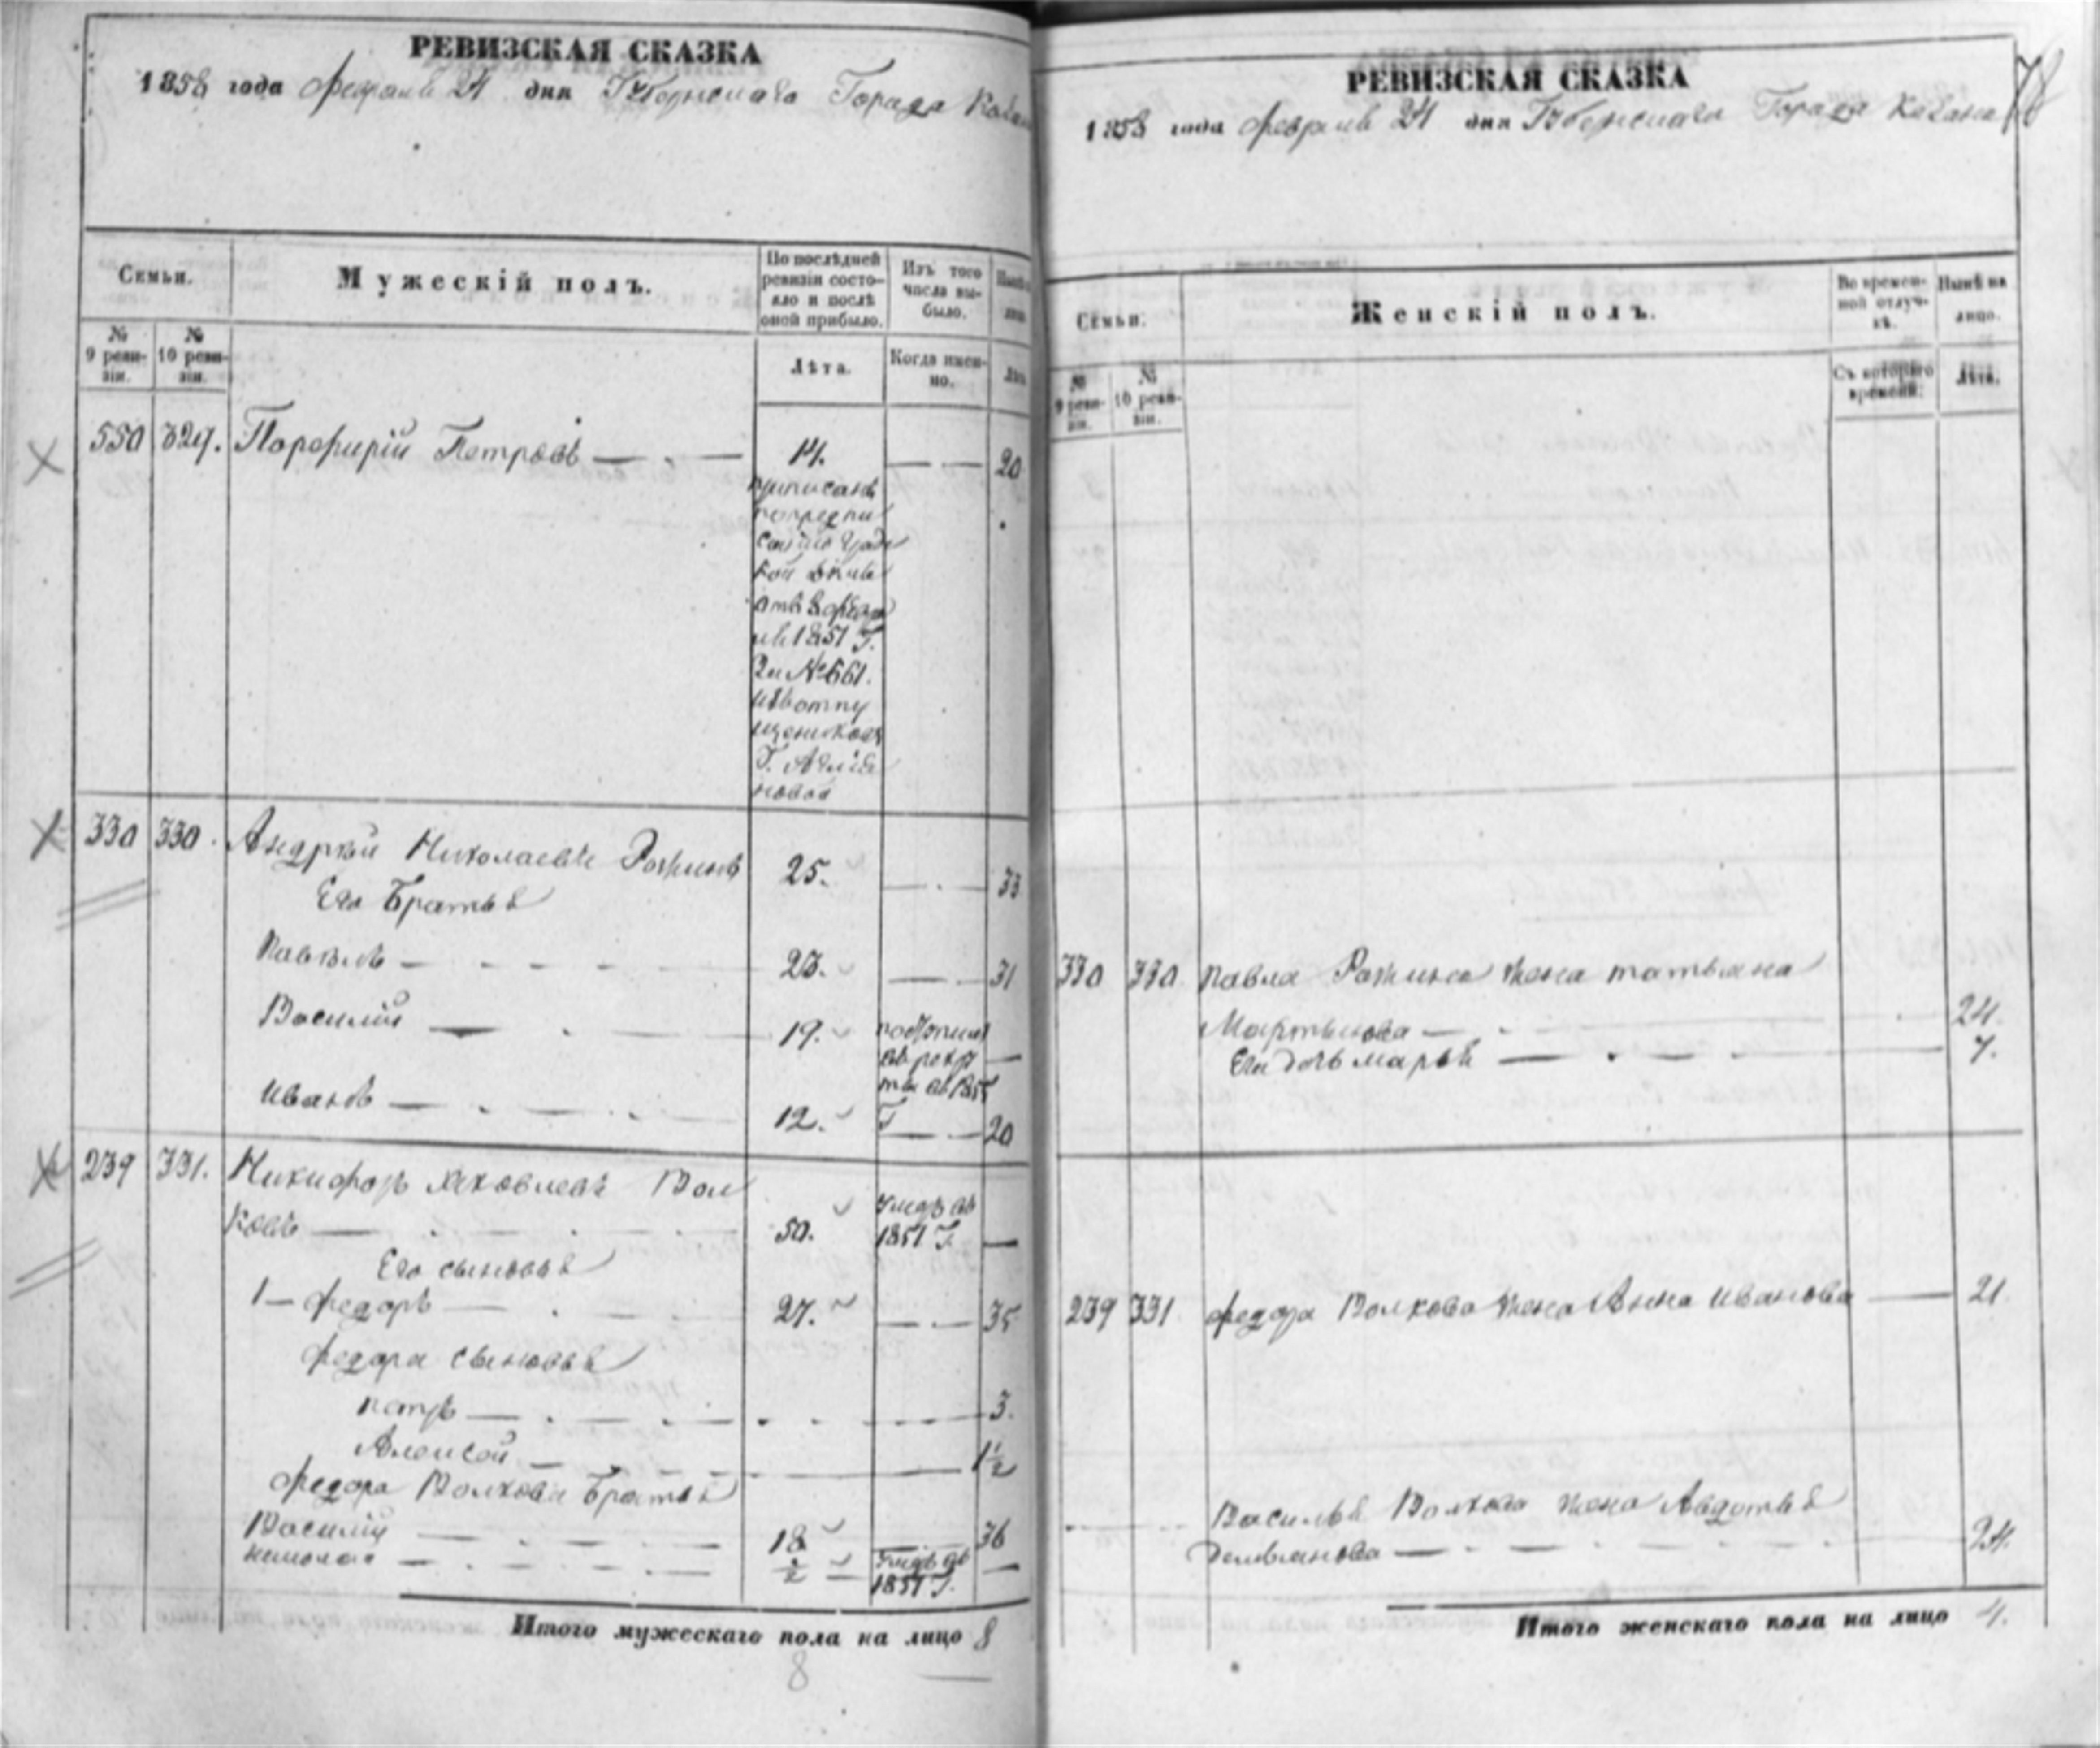 РЕВИЗСКАЯ СКАЗКА
1858 года Февраля 24 дня Губернскаго Города Казан
Семьи.
Мужескій полъ.
По послѣдней ревизіи состояло и послѣ оной прибыло.
Изъ того числа выбыло.
№ 9 ревизіи.
№ 10 ревизіи.
Лѣта.
Когда именно.
550 329. Порфирій Петровъ 14. 20
приписанъ
по предпи
санію
отъ 8 февра
ля 1851 Г.
За № 661.
изъ отпу
щениковъ
Г.
330 330. Андрѣй Николаевъ Рожинъ 25. 33
Его Братья
Павелъ 23. 31
Василій 19. поступилъ
въ рекру
ты въ 1855
Г
Иванъ 12. 20
239 331. Никифоръ Яковлевъ Вол
ковъ 50. Умеръ въ
1851 Г.
Его сыновья
1 Федоръ 27. 35
Федора сыновья
Петръ 3.
Алексѣй 1½
Федора Волкова Братья
Василій 18 36
Николай ½ Умеръ въ
1851 Г.
Итого мужескаго пола на лицо 8
8
78
РЕВИЗСКАЯ СКАЗКА
1858 года Февраля 24 дня Губернскаго Города Казани
Семьи.
Женскій полъ.
Во временной отлучкѣ.
Нынѣ на лицо.
№ 9 ревизіи.
№ 10 ревизіи.
Съ котораго времени.
Лѣта.
330 330 Павла Рожина жена татьяна
Мартынова 24.
Ея дочь марья 7.
239 331 Федора Волкова жена Анна Иванова 21
Василья Волкова жена Авдотья
Демьянова 24.
Итого женскаго пола на лицо 4.